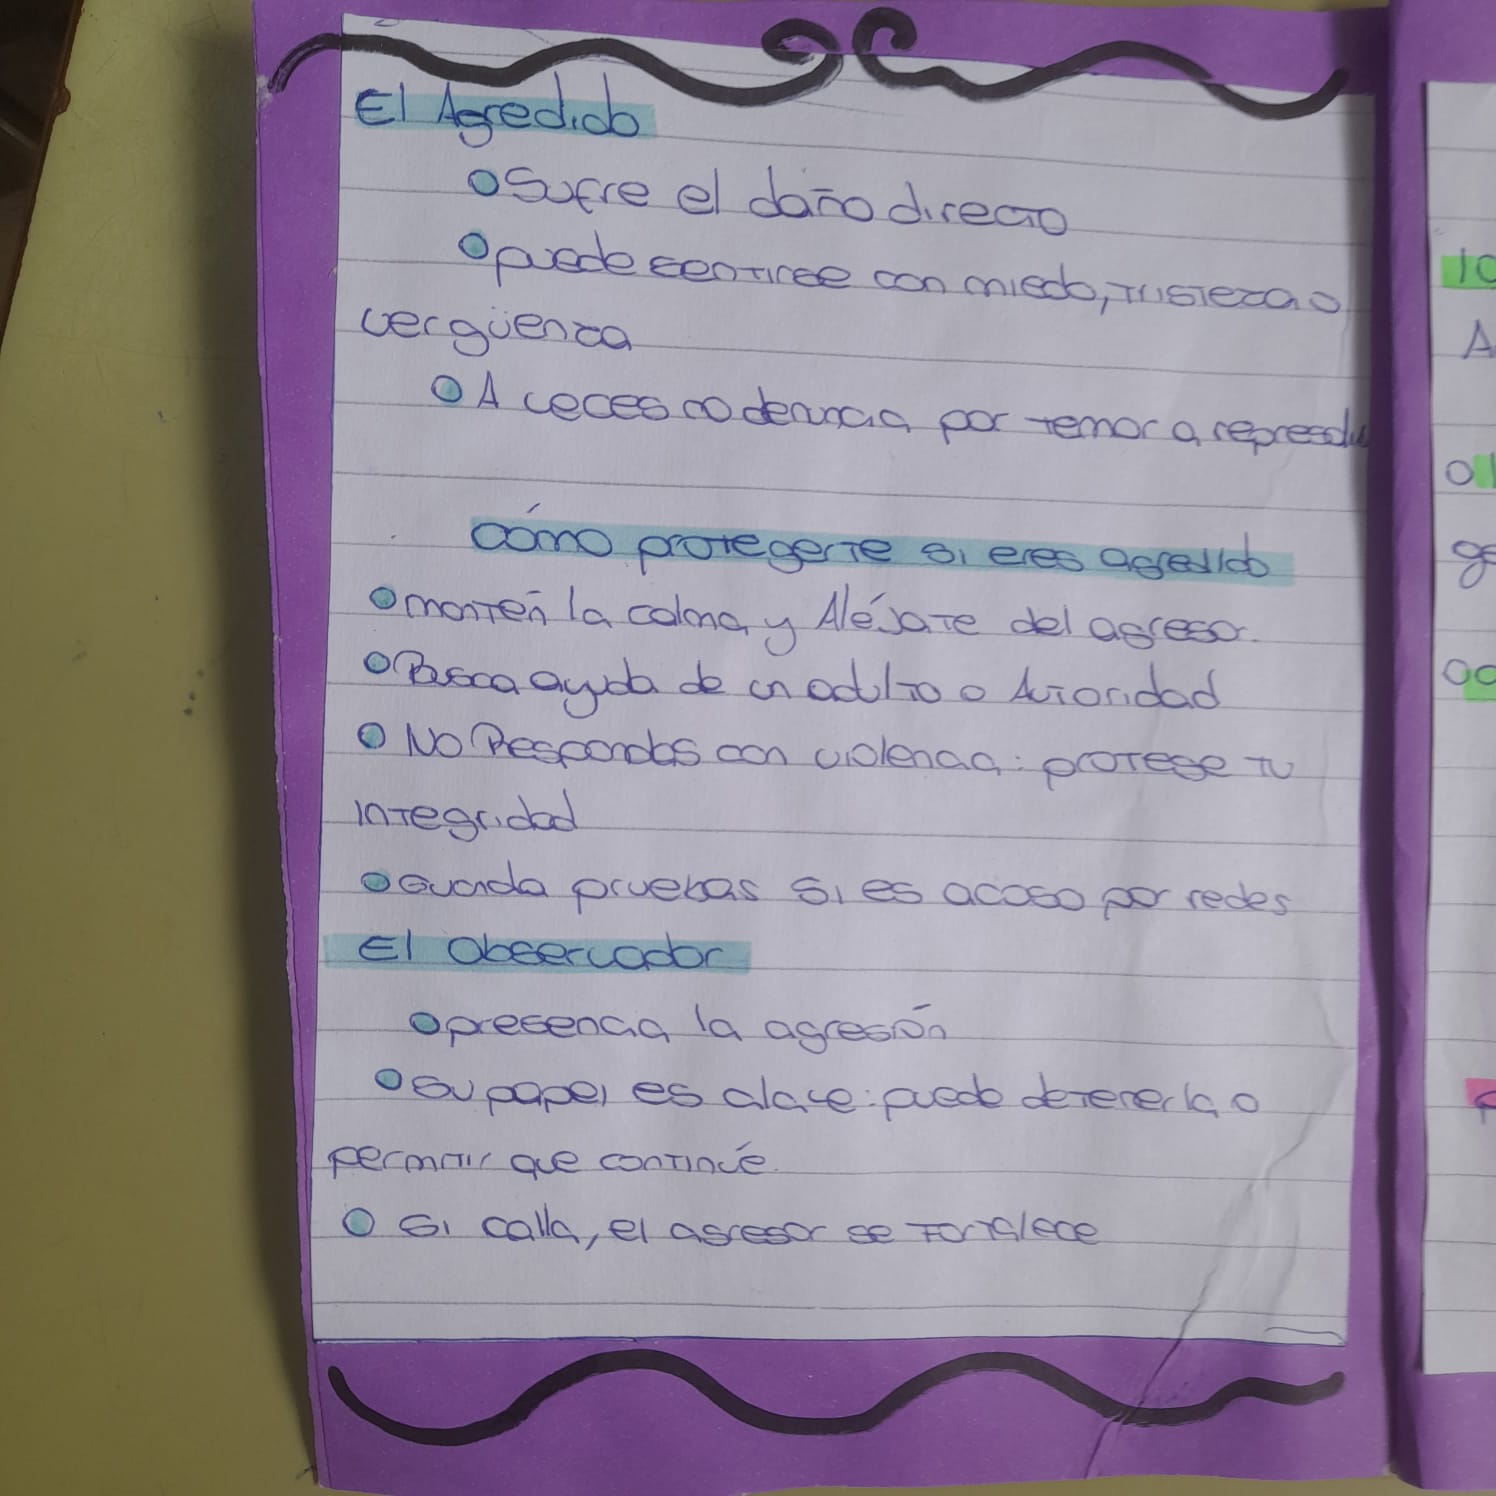 El Agredido
Sufre el daño directo
puede sentirse con miedo, tristeza o
vergüenza
A veces no denuncia por temor a
cómo protegerte si eres agredido
mantén la calma y Aléjate del agresor.
Busca ayuda de un adulto o Autoridad
No Respondas con violencia: protege tu
integridad
Guarda pruebas si es acoso por redes
El observador
presencia la agresión
Su papel es clave: puede detenerla o
permitir que continúe.
Si calla, el agresor se Fortalece